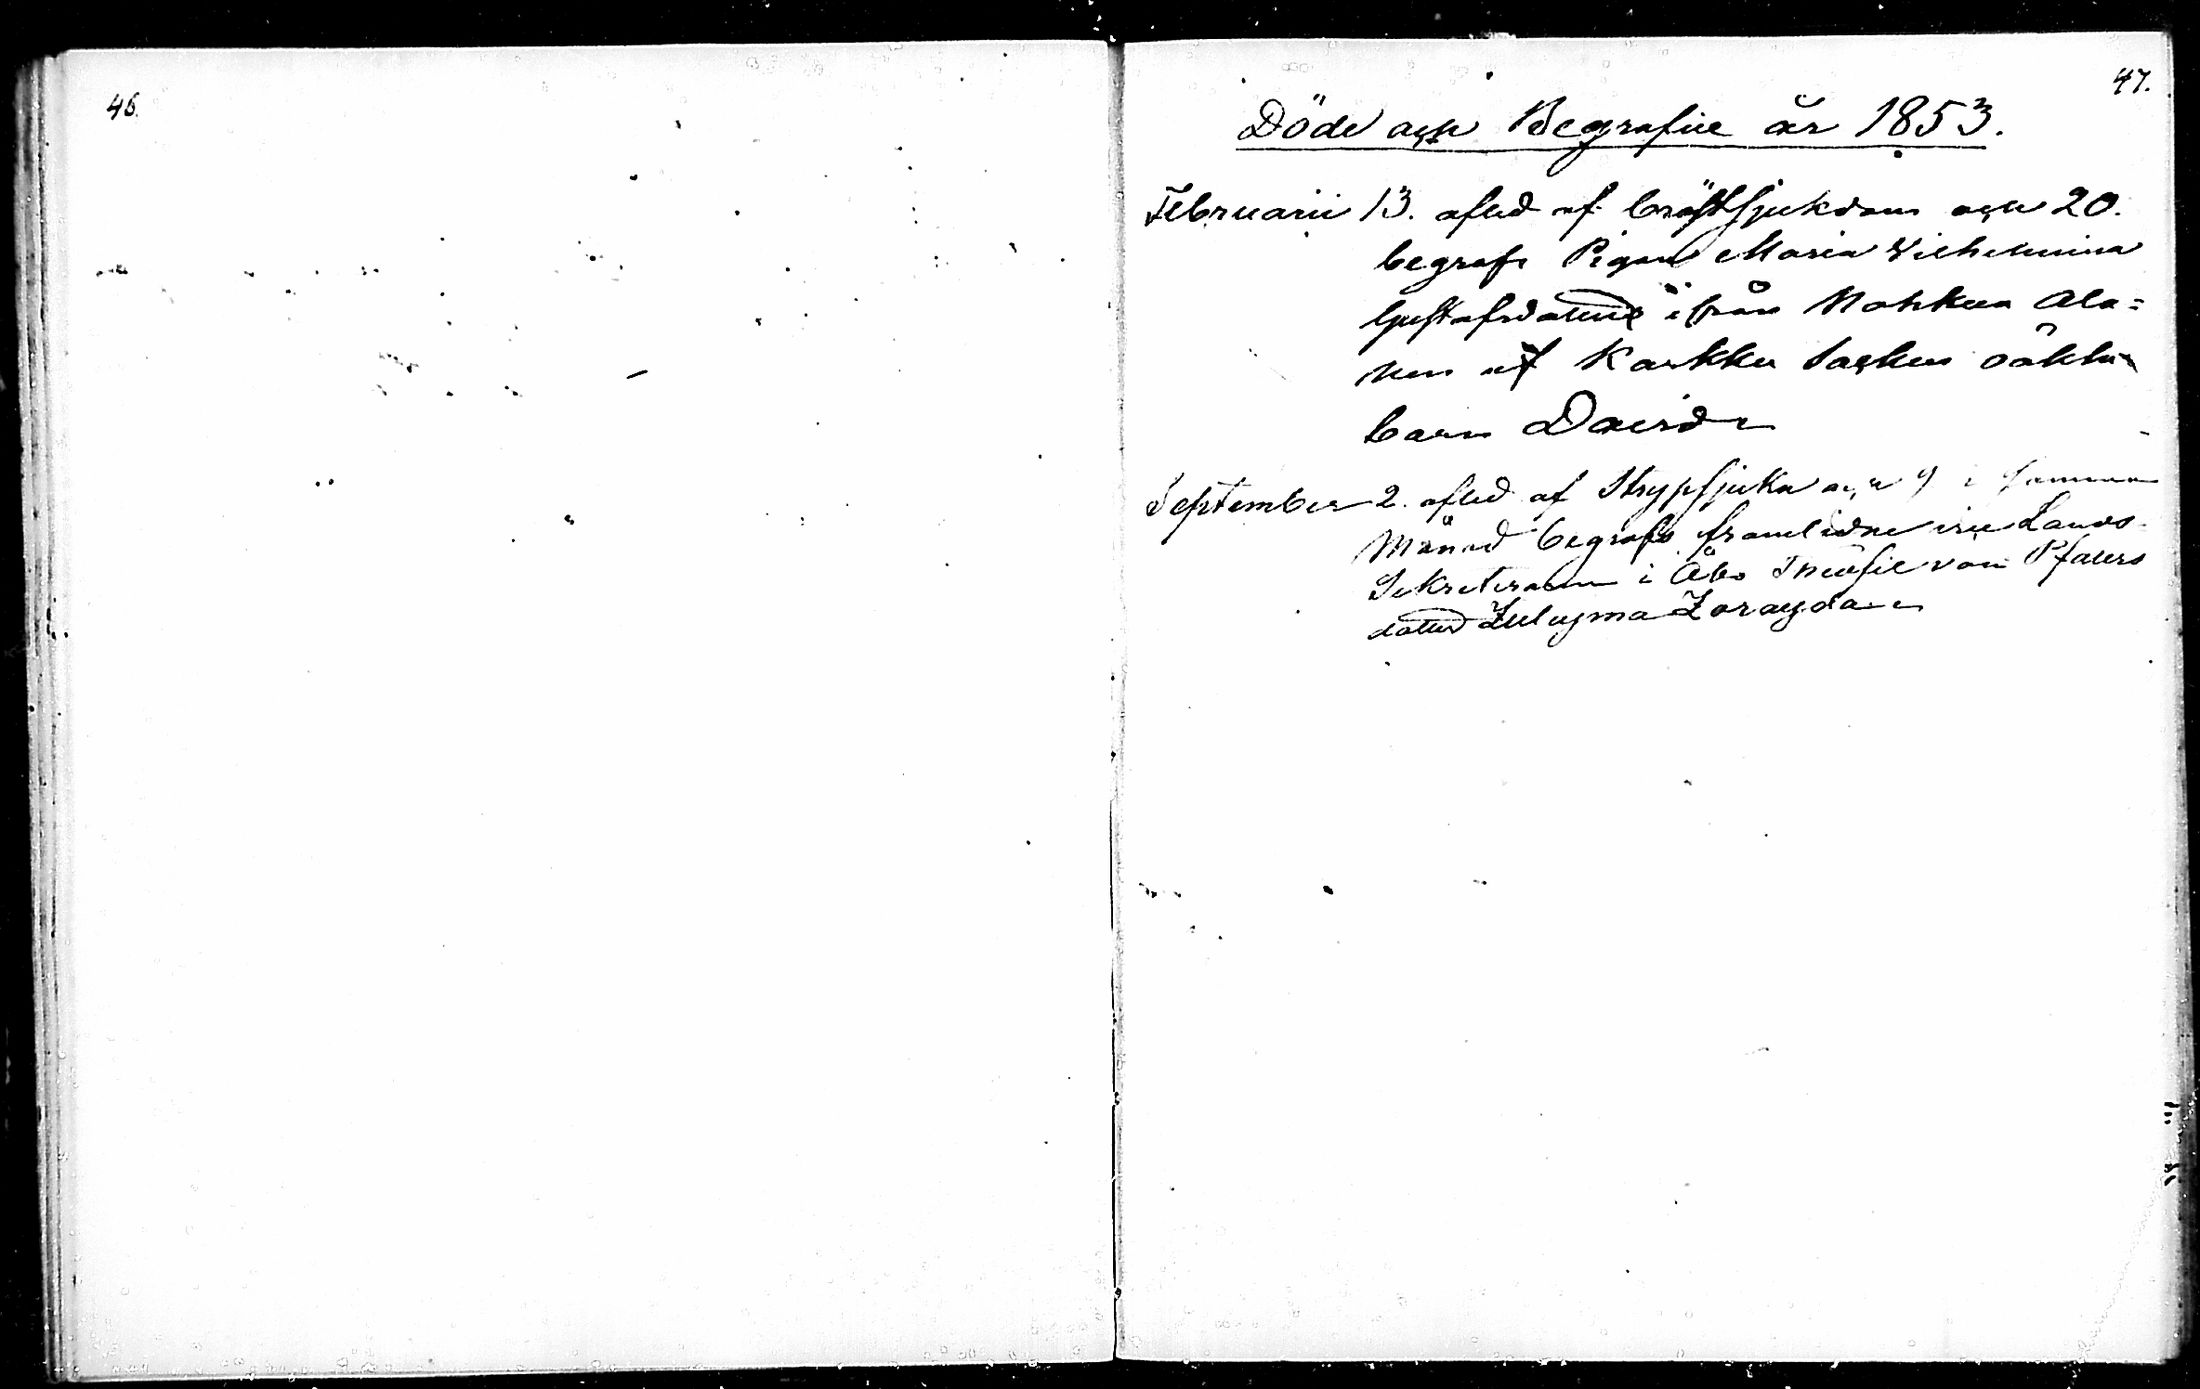 46.
47.
Döde och Begrafne år 1853.
Februarii 13. afled af bröstsjukdom och 20.
begrofs Pigan Maria Wilhelmina
Gustafsdotters ifrån Nohkua Ala=
nen af Karkku Socken oäkta
barn David
September 2. afled af Strypsjuka och 9 i samma
Månad begrofs framlidne Lands-
Sekreteraren i Åbo von Pfalers
dotter Zulayma Zorayda